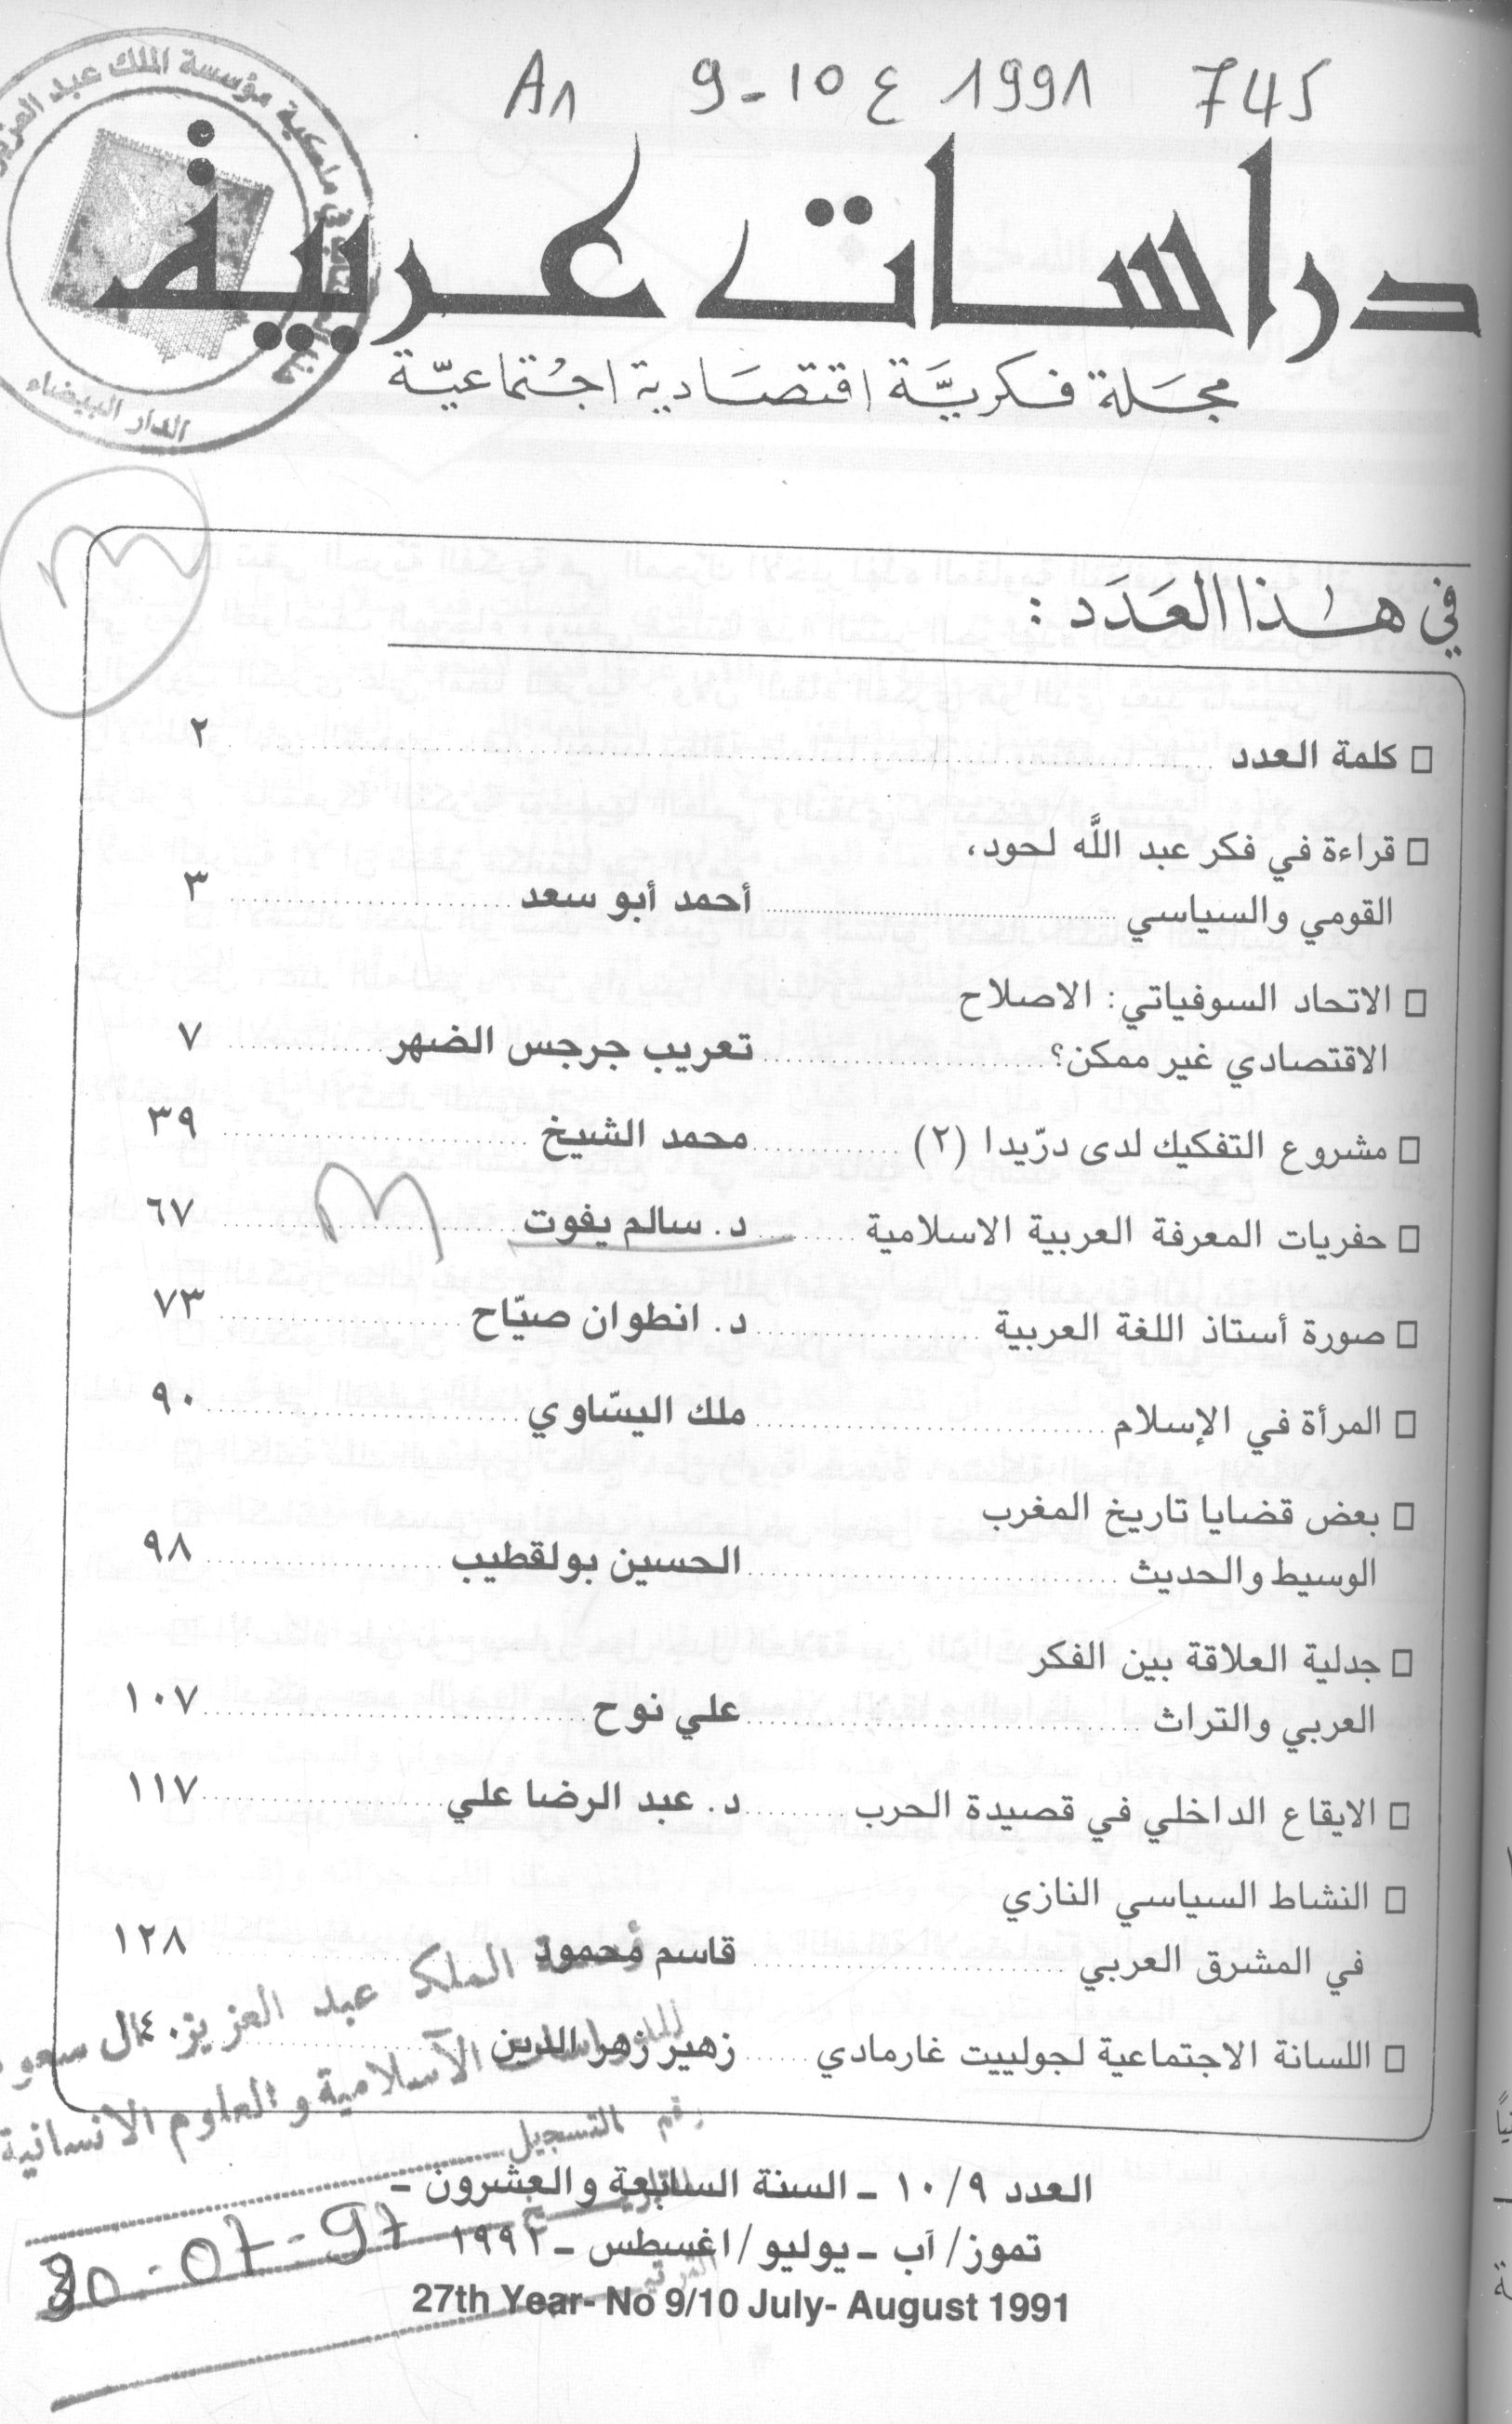 A1 9-10 ع 1991 745
دراسات عربية
مجلة فكريَّة اقتصَادية اجتماعيّة
مؤسسة الملك عبد العزيز
الدار البيضاء
في هٰذا العَدَد :
□ كلمة العدد ٢
□ قراءة في فكر عبد اللَّه لحود،
القومي والسياسي أحمد أبو سعد ٣
□ الاتحاد السوفياتي: الاصلاح
الاقتصادي غير ممكن؟ تعريب جرجس الضهر ٧
□ مشروع التفكيك لدى درّيدا (٢) محمد الشيخ ٣٩
□ حفريات المعرفة العربية الاسلامية د. سالم يفوت ٦٧
□ صورة أستاذ اللغة العربية د. انطوان صيّاح ٧٣
□ المرأة في الإسلام ملك اليسّاوي ٩٠
□ بعض قضايا تاريخ المغرب
الوسيط والحديث الحسين بولقطيب ٩٨
□ جدلية العلاقة بين الفكر
العربي والتراث علي نوح ١٠٧
□ الايقاع الداخلي في قصيدة الحرب د. عبد الرضا علي ١١٧
□ النشاط السياسي النازي
في المشرق العربي قاسم محمود ١٢٨
□ اللسانة الاجتماعية لجولييت غارمادي زهير زهر الدين
الملك عبد العزيز آل سعود
للدراسات الآسلامية و العلوم الانسانية
رقم التسجيل
30-07-97
العدد ١٠/٩ ـ السنة السابعة والعشرون ـ
تموز/ آب ـ يوليو/ اغسطس ـ ١٩٩١
27th Year- No 9/10 July- August 1991